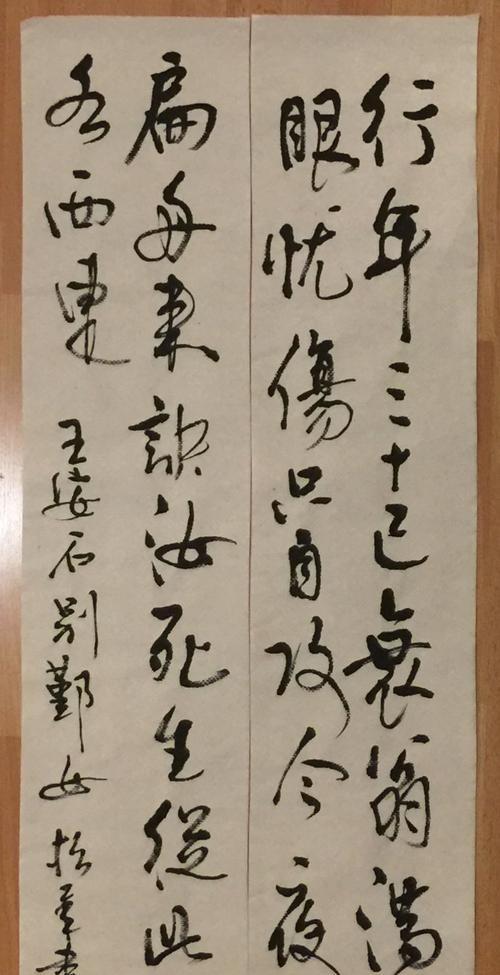 行年三十已衰翁滿
眼忧傷只自攻今夜
扁舟来訣汝死生從此
各西東
王安石别鄞女